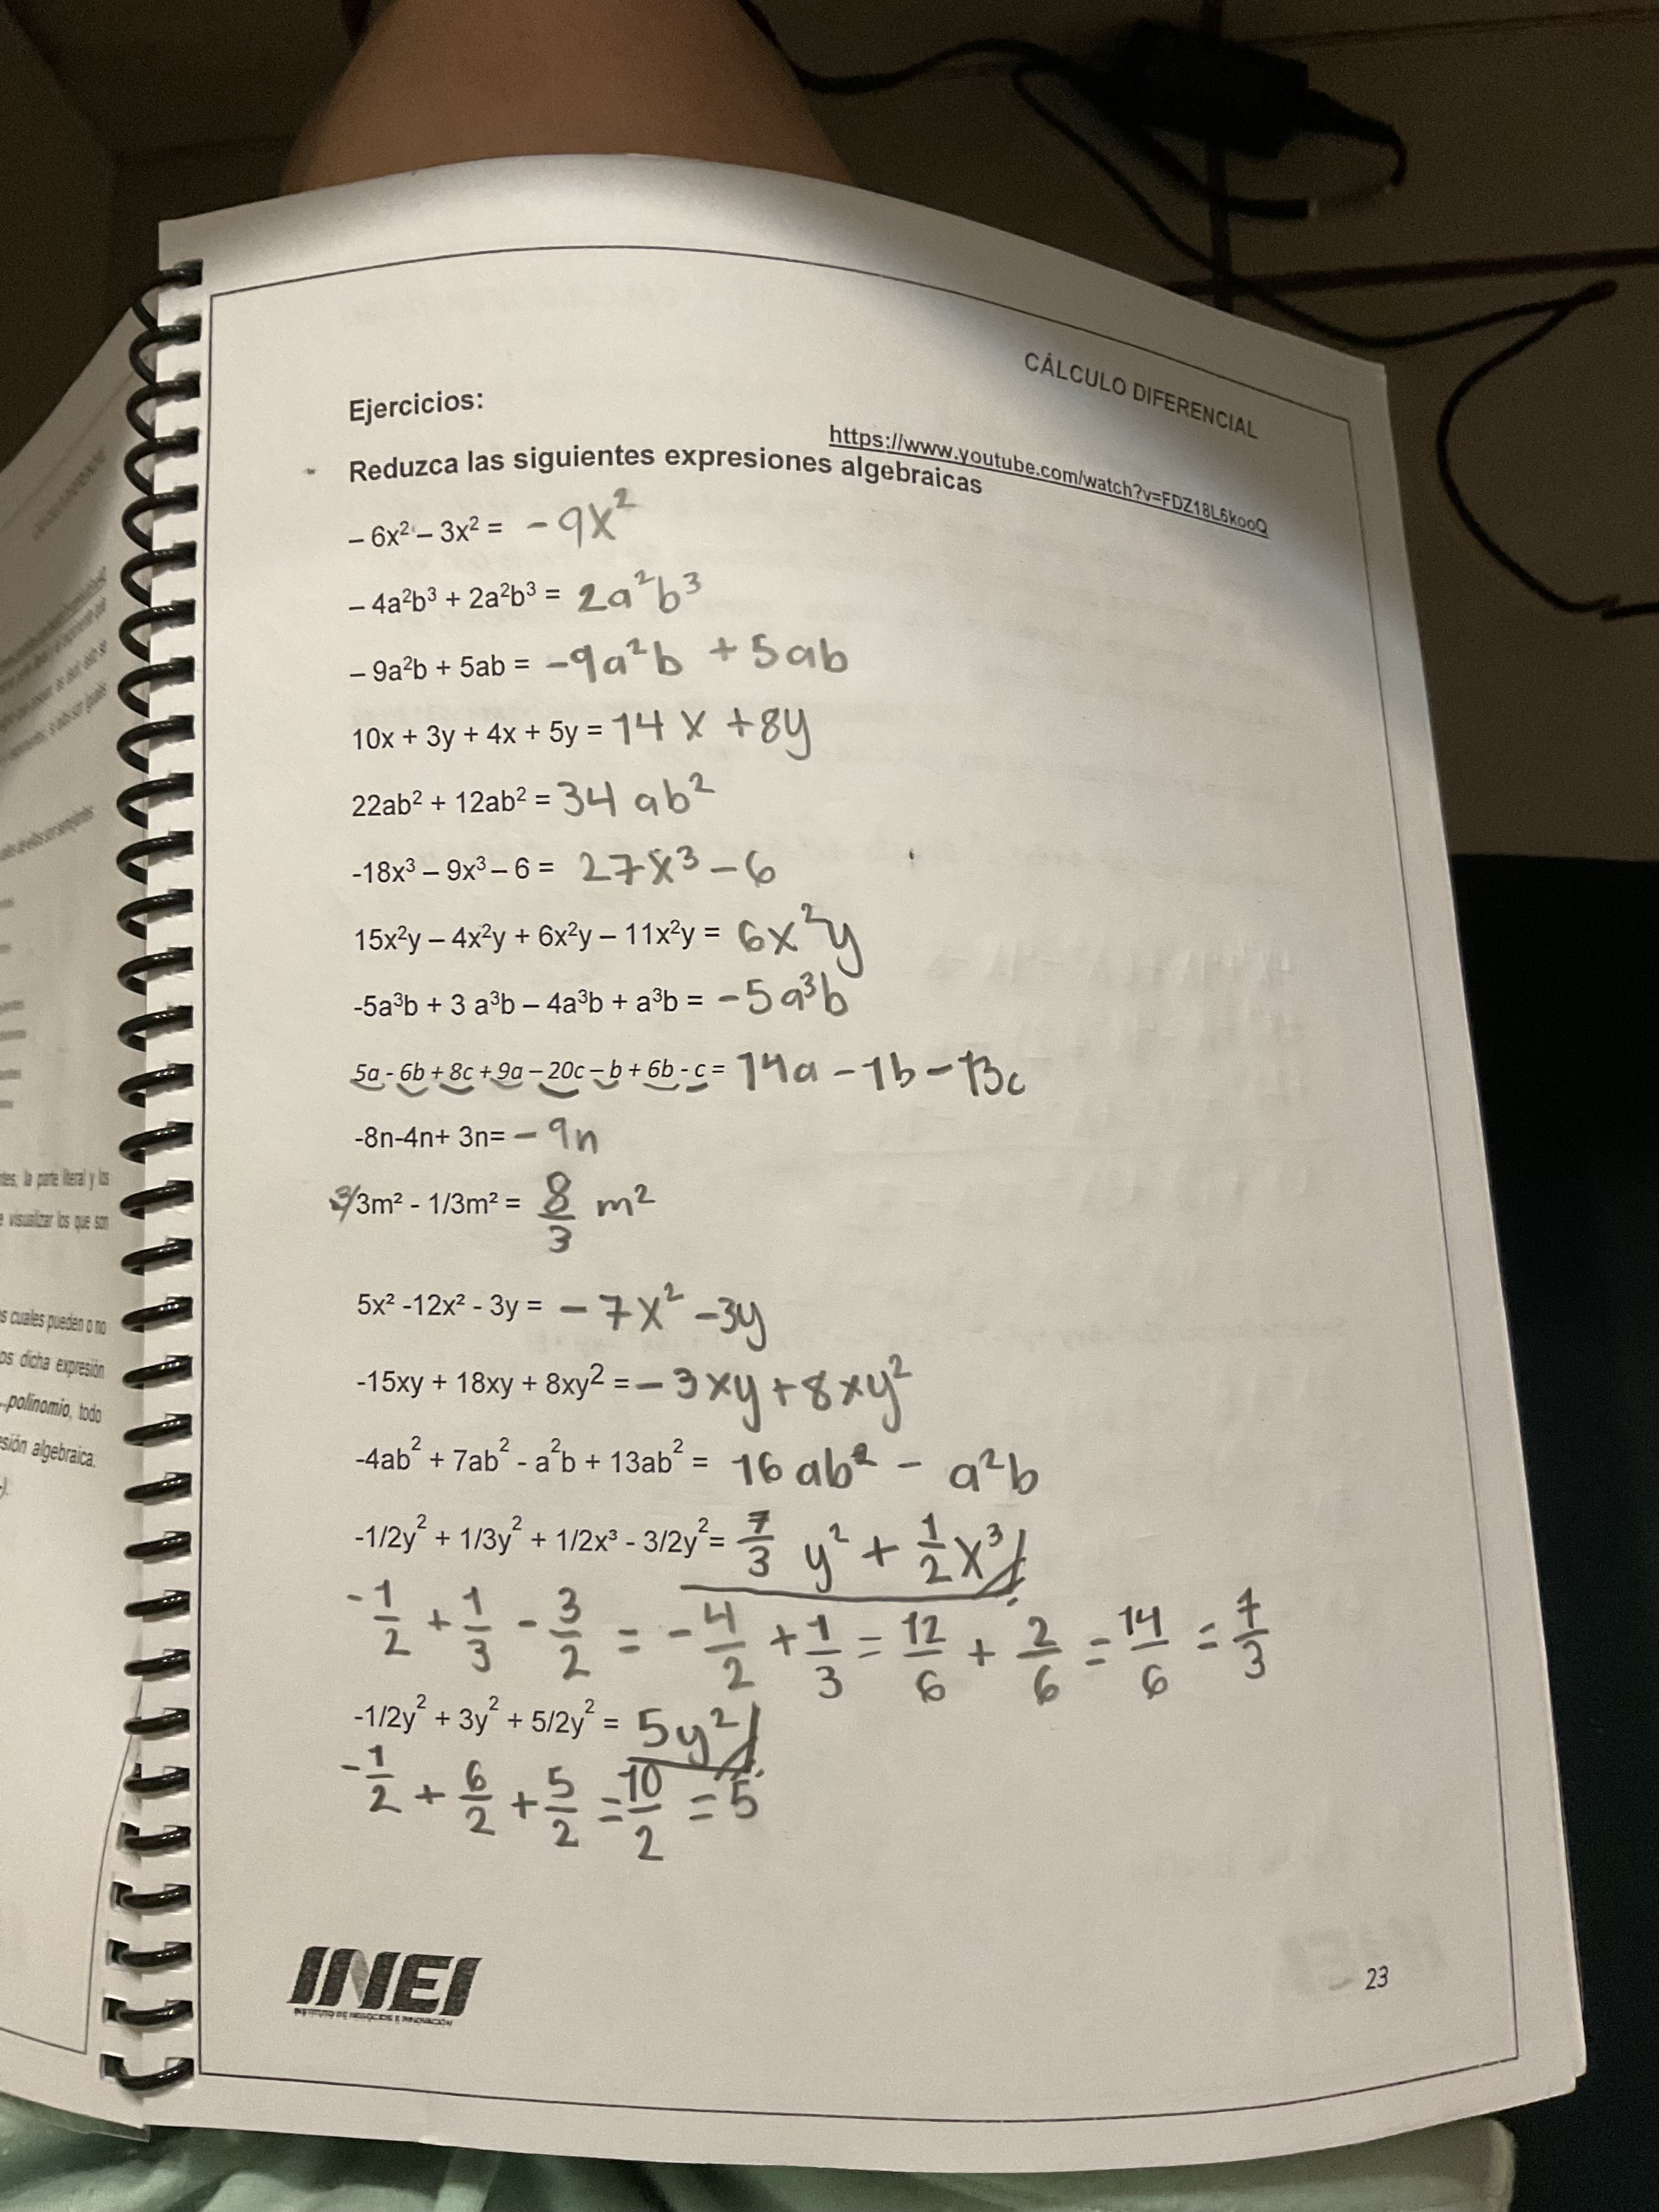 CÁLCULO DIFERENCIAL
Ejercicios:
https://www.youtube.com/watch?v=FDZ18L6kooQ
Reduzca las siguientes expresiones algebraicas
– 6x² – 3x² = -9x²
– 4a²b³ + 2a²b³ = 2a²b³
– 9a²b + 5ab = -9a²b + 5ab
10x + 3y + 4x + 5y = 14x + 8y
22ab² + 12ab² = 34 ab²
-18x³ – 9x³ – 6 = 27x³ - 6
15x²y – 4x²y + 6x²y – 11x²y = 6x²y
-5a³b + 3 a³b – 4a³b + a³b = -5a³b
5a - 6b + 8c + 9a – 20c – b + 6b - c = 14a - 1b - 13c
-8n-4n+ 3n= -9n
3/3m² - 1/3m² = 8/3 m²
5x² -12x² - 3y = -7x² -3y
-15xy + 18xy + 8xy² = -3xy + 8xy²
-4ab² + 7ab² - a²b + 13ab² = 16ab² - a²b
-1/2y² + 1/3y² + 1/2x³ - 3/2y² = 7/3 y² + 1/2x³
-1/2 + 1/3 - 3/2 = -4/2 + 1/3 = 12/6 + 2/6 = 14/6 = 7/3
-1/2y² + 3y² + 5/2y² = 5y²
-1/2 + 6/2 + 5/2 = 10/2 = 5
INEI
INSTITUTO DE NEGOCIOS E INNOVACIÓN
23
tes, la parte literal y los
visualizar los que son
s cuales pueden o no
os dicha expresión
polinomio, todo
sión algebraica.